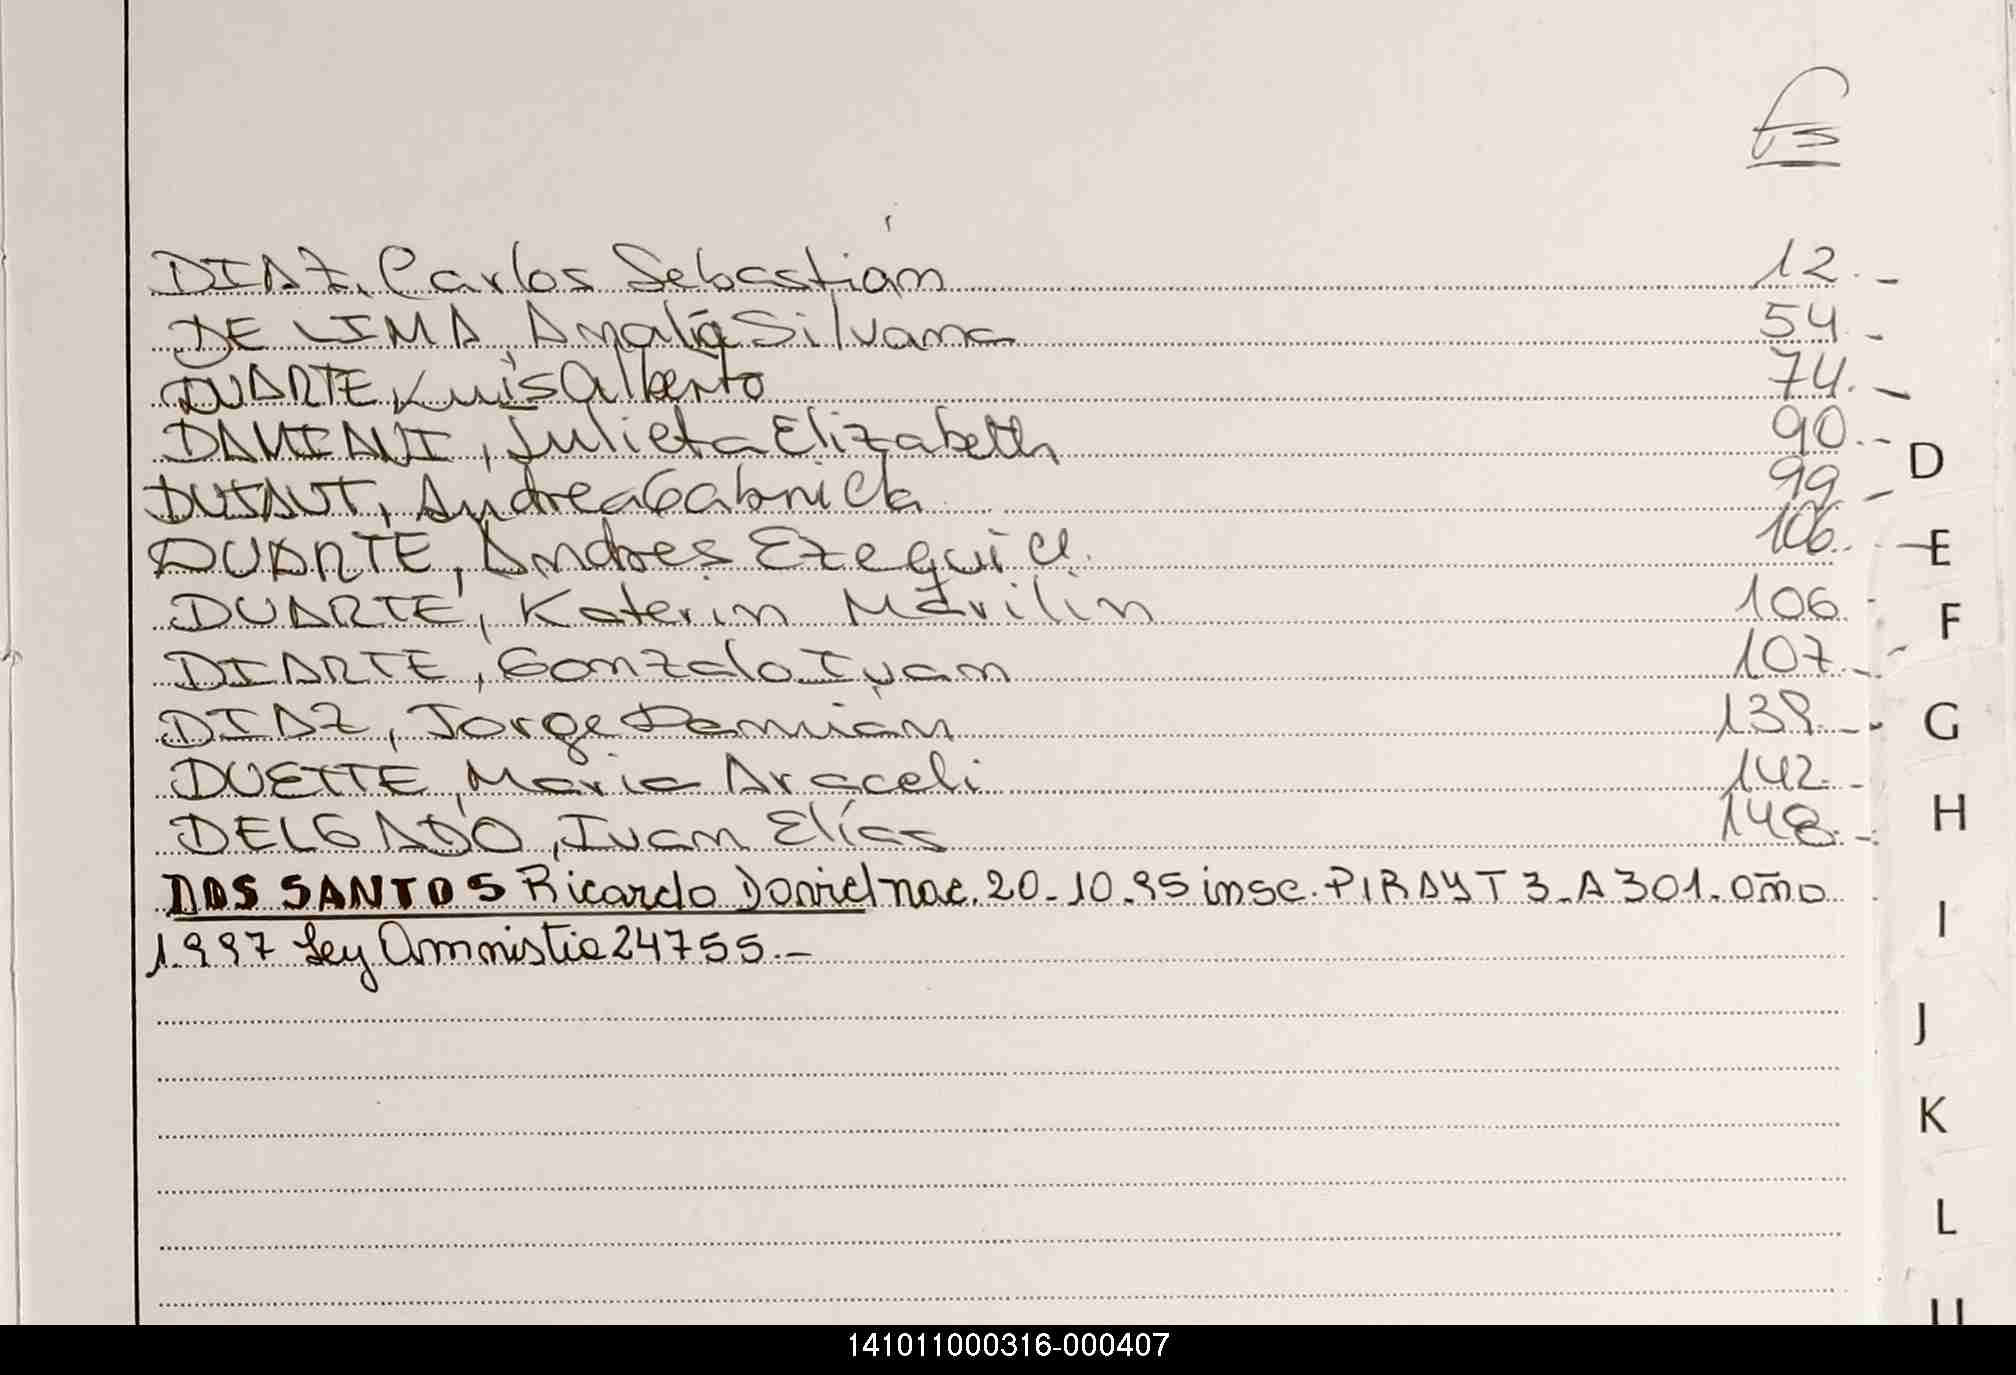 fs
DIAZ, Carlos Sebastián 12.-
DE LIMA, Amalia Silvana 54.-
DUARTE, Luis Alberto 74.-
DAMIANI, Julieta Elizabeth 90.-
Andrea Gabriela 99.-
DUARTE, Andres Ezequiel. 106.-
DUARTE, Katerin Marilin 106.-
DIARTE, Gonzalo Ivan 107.-
DIAZ, Jorge Damián 138.-
DUETTE, Maria Araceli 142.-
DELGADO, Ivan Elías 148.-
DOS SANTOS Ricardo Daniel nac. 20-10-95 insc. PIRAY T 3-A 301. año
1997 Ley Amnistia 24755.-
D
E
F
G
H
I
J
K
L
141011000316-000407